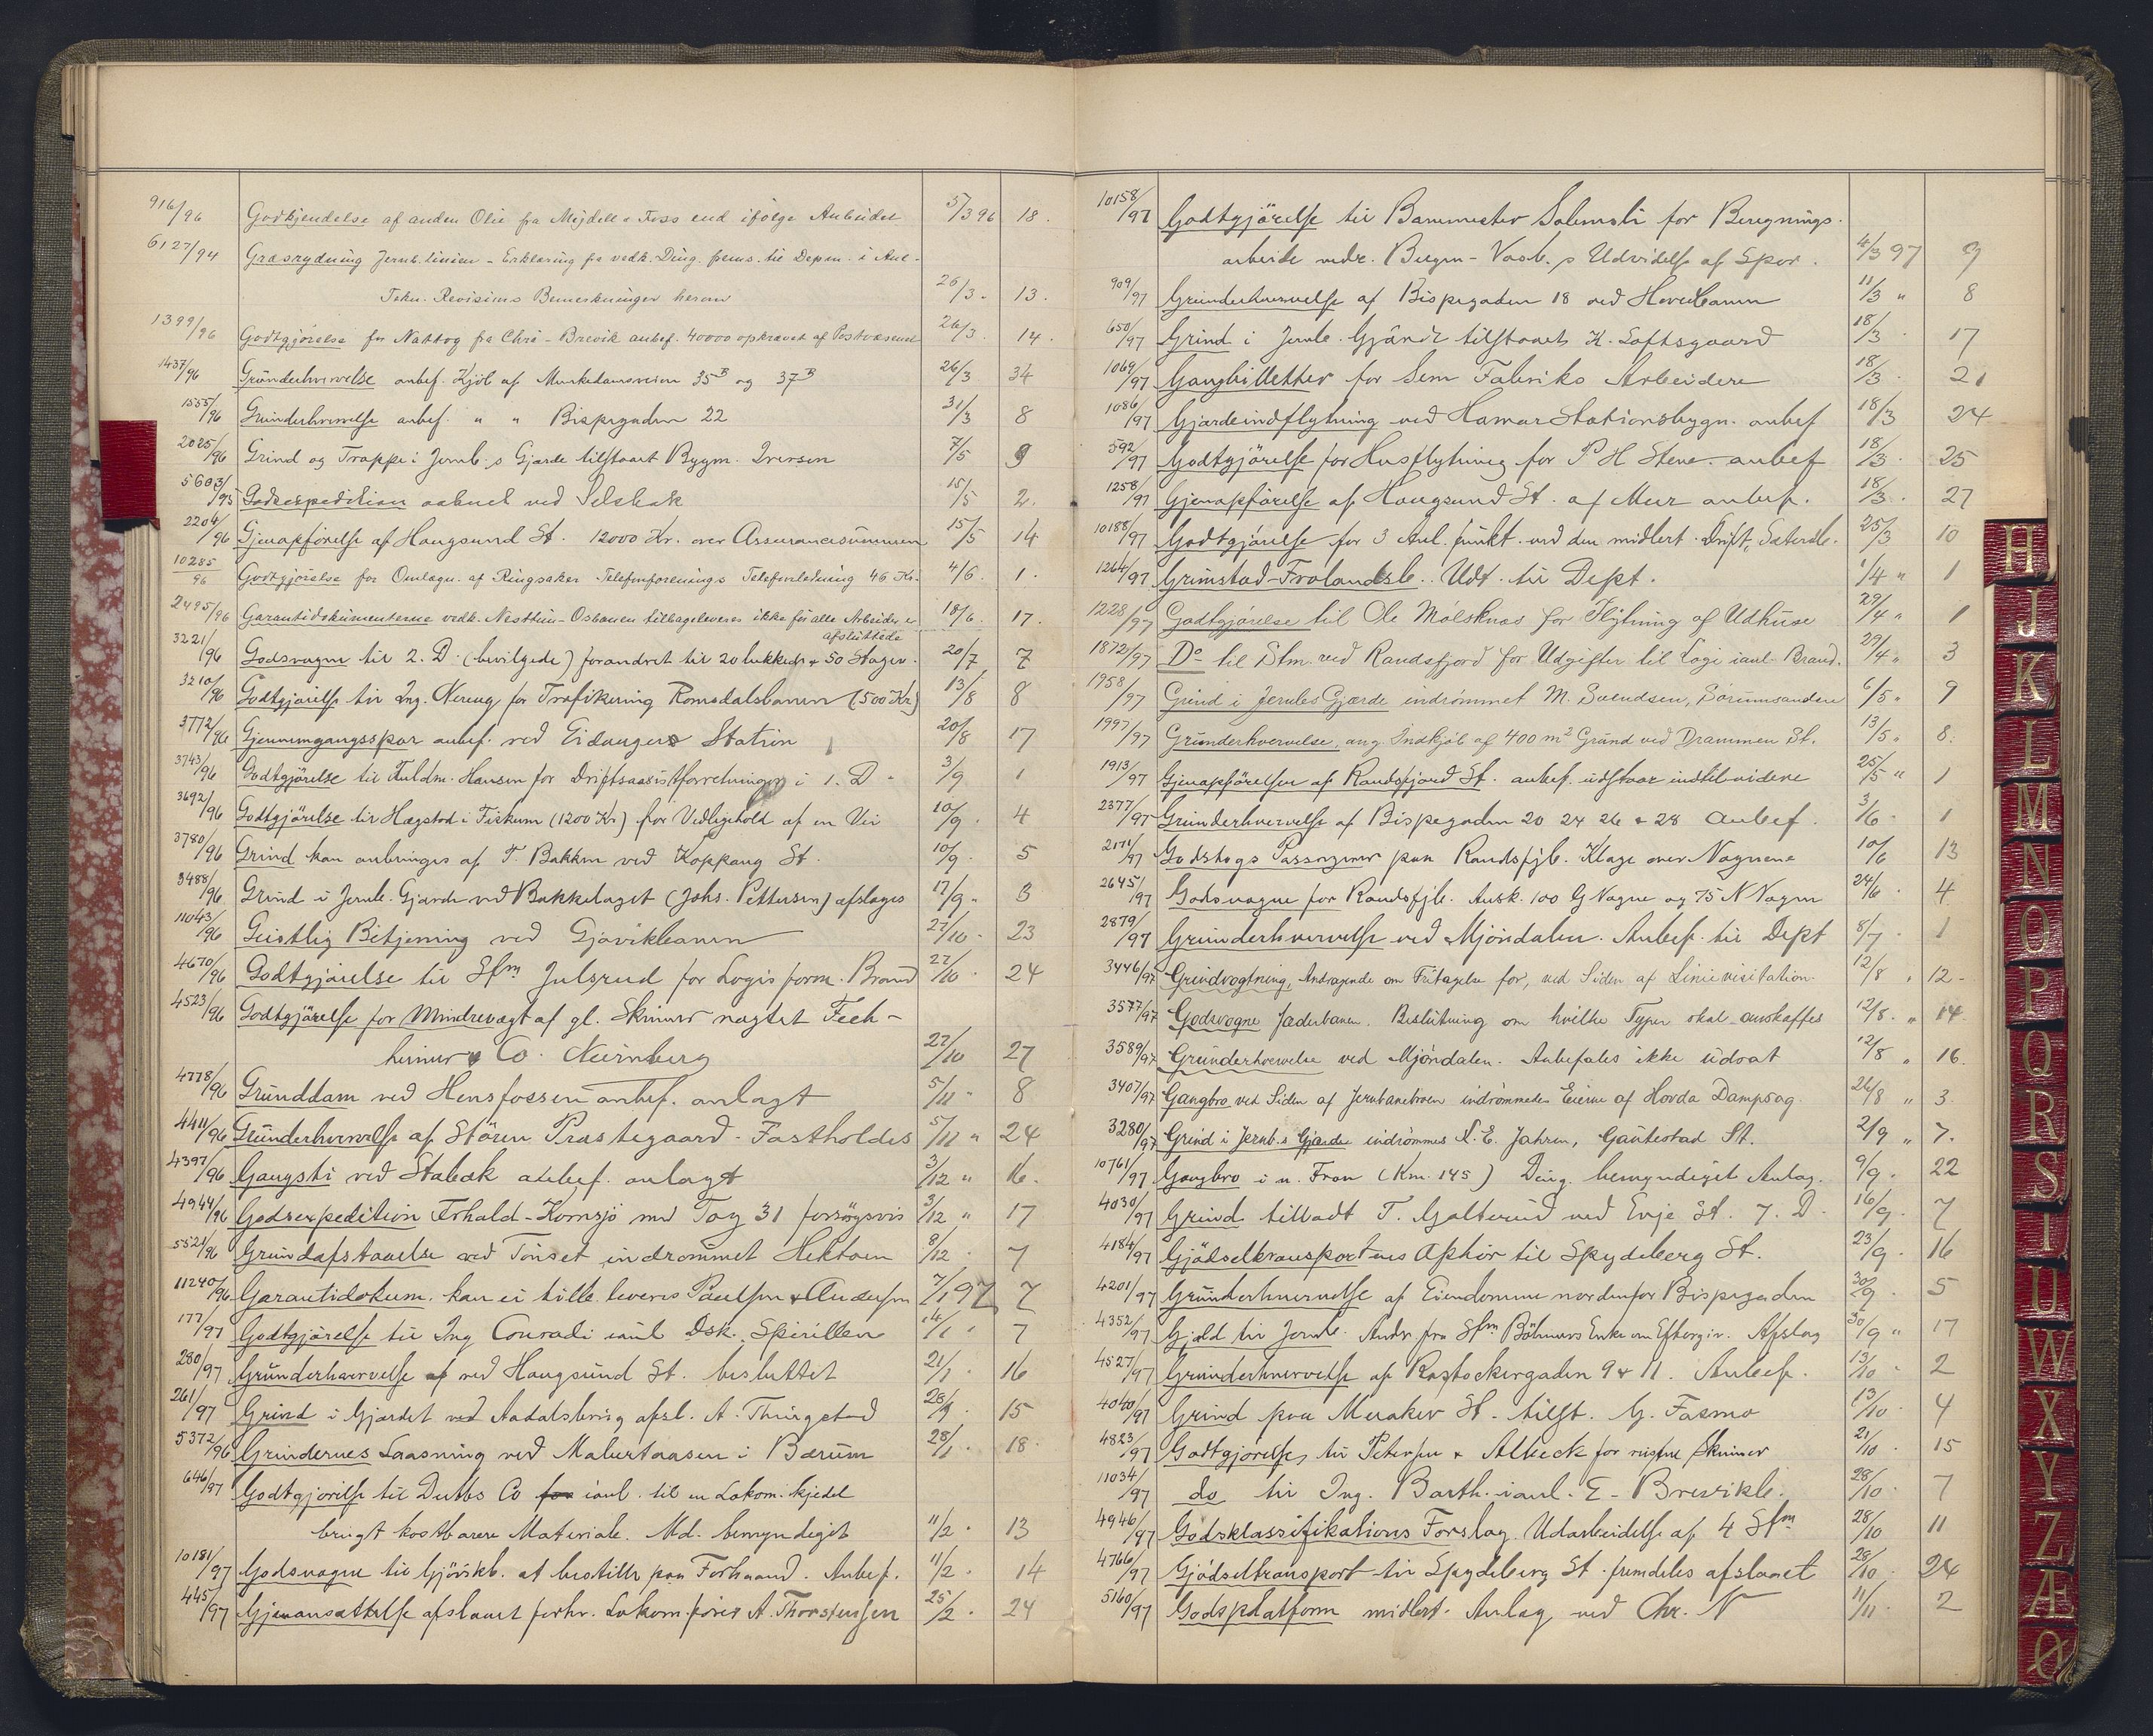 916/96 Godkjendelse af anden Olie fra Mejdell & Foss end ifölge Anbudet 5/3 96 18.
6127/94 Græsrydning Jernb. linien - Erklæring fra vedk. Ding. frems. til Depm. i Anl.
Tekn. Revisions Bemerkninger herom 26/3 - 13.
1399/96 Godtgjörelse for Nattog fra Chra - Brevik anbef. 40000 opkrævet af Postvæsenet 26/3. 14.
1437/96 Gründerhvervelse anbef. Kjöb af Munkedamsveien 35B og 37B 26/3 34
1555/96 Gründerhvervelse anbef. " " Bispegaden 22 31/3 8
2025/96 Grind og Trappe i Jernb.s Gjærde tilstaaet Bygm. Iversen 7/5 9
5603/95 Godsexpedition aabnet ved Selsbak 15/5 2.
2204/96 Gjenopförelse af Hougsund St. 12000 Kr. over Assurancesummen 15/5 14
10285/96 Godtgjörelse for Omlægn. af Ringsaker Telefonforenings Telefonledning 46 Kr. 4/6. 1.
2495/96 Garantidokumenterne vedk. Nesttün-Osbanen tilbageleveres ikke för alle Arbeider er afsluttede 18/6. 17.
3221/96 Godsvogne til 2. D. (bevilgede) forandret til 20 lukkede & 50 Stagev. 20/7 7
3210/96 Godtgjörelse til Ing. Nereng for Trafikering Romsdalsbanen (500 Kr) 13/8 8
3772/96 Gjennemgangsspor anbef. ved Eidanger Station 20/8 17
3743/96 Godtgjörelse til Fuldm. Hansen for Driftsassistforretninger i 1. D. 3/9 1
3692/96 Godtgjörelse til Hægstad i Fiskum (1200 Kr) for Vedligehold af en Vei 10/9. 4
3780/96 Grind kan anbringes af T. Bakken ved Koppang St. 10/9. 5
3488/96 Grind i Jernb. Gjærde ved Bækkelaget (Johs. Pettersen) afslages 17/9 " 3
11043/96 Geistlig Betjening ved Gjövikbanen 27/10 - 23
4670/96 Godtgjörelse til Stm Julsrud for Logis form. Brand 27/10. 24
4523/96 Godtgjörelse for Mindrevægt af gl. Skinner nægtet Fech-
heimer & Co. Nürnberg 27/10 27
4778/96 Grunddam ved Hensfossen anbef. anlagt 5/11 " 8
4411/96 Gründerhvervelse af Stören Præstegaard - Fastholdes 5/11 " 24
4397/96 Gangsti ved Stabæk anbef. anlagt 3/12 " 16.
4944/96 Godsexpedition Frhald-Kornsjö med Tog 31 forsögsvis 3/12 " 17
5521/96 Grundafstaaelse ved Tönset indrömmet Hektoen 8/12 7
11240/96 Garantidokum. kan ei tilb. leveres Paulsen & Andersen 7/1 97 7
177/97 Godtgjörelse til Ing Conradi ianl Dsk. Spirillen 14/1 " 7
280/97 Gründerhvervelse af ved Hougsund St. besluttet 21/1. 16
261/97 Grind i Gjærdet ved Aadalsbrug afsl. A. Thingstad 28/1 - 15
5372/96 Grindernes Laasning ved Maburtaasen i Bærum 28/1 - 18.
646/97 Godtgjörelse til Dubs Co for ianl. til en Lokom. kjedel
brugt kostbarere Materiale. Md. bemyndiget 11/2 . 13
10181/97 Godsvogne til Gjövikb. at bestille paa Forhaand. Anbef. 11/2. 14
445/97 Gjenansættelse afslaaet forhv. Lokom. förer A. Thorstensen 25/2. 24
10158/97 Godtgjörelse til Banemester Solemsli for Beregnings.
arbeide vedr. Bergen-Vosb.s Udvidelse af Spor. 4/3 97 9
909/97 Gründerhvervelse af Bispegaden 18 ved Hovedbanen 11/3 " 8
650/97 Grind i Jernb. Gjærde tilstaaet K. Loftsgaard 18/3. 17
1069/97 Gangbilletter for Sem Fabriks Arbeidere 18/3. 21
1086/97 Gjærdeindflytning ved Hamar Stationsbygn. anbef 18/3 24
592/97 Godtgjörelse for Husflytning for P H Stene anbef 18/3. 25
1258/97 Gjenopförelse af Hougsund St. af Mur anbef. 18/3. 27
10188/97 Godtgjörelse for 3 Anl. funkt. ved den midlert. Drift, Sætersb. 25/3 10
1264/97 Grimstad-Frolandsb. Udt. til Dept. 1/4 " 1
1228/97 Godtgjörelse til Ole Mölsknæs for Flytning af Udhuse 29/4 " 1
1872/97 Do til Stm. ved Randsfjord for Udgifter til Logi ianl. Brand. 29/4 " 3
1958/97 Grind i JernbsGjærde indrömmet M. Svendsen, Sörumsanden 6/5 " 9
1997/97 Gründerhvervelse, ang. Indkjöb af 400 m2 Grund ved Drammen St. 13/5 " 8.
1913/97 Gjenopförelsen af Randsfjord St. anbef. udstaar indtil videre 25/5 " 1
2377/97 Gründerhvervelse af Bispegaden 20 24 26 & 28 Anbef. 3/6 - 1
2171/97 Godstogs Passagerer paa Randsfjb. Klage over Vognene 10/6 13
2645/97 Godsvogne for Randsfjb. Ansk. 100 G Vogne og 75 N Vogne 24/6. 4
2879/97 Gründerhvervelse ved Mjöndalen. Anbef. til Dept 8/7. 1
3446/97 Grindvogtning, Andragende om Fritagelse for, ved Siden af Linievisitation 12/8 " 12-
3577/97 Godsvogne Jæderbanen. Beslutning om hvilke Typer skal anskaffes 12/8. " 14.
3589/97 Gründerhvervelse ved Mjöndalen. Anbefales ikke udsat 12/8 " 16.
3407/97 Gangbro ved Siden af Jernbanebroen indrömmedes Eierne af Hovda Dampsag. 26/8 " 3.
3280/97 Grind i Jernb.s Gjærde indrömmes N. E. Jahren, Gautestad St. 2/9 " 7.
10761/97 Gangbro i n. Fron (Km. 145) Ding. bemyndiget Anlæg. 9/9. 22
4030/97 Grind tilladt T. Galterud ved Evje St. 7. D. 16/9. 7
4184/97 Gjödseltransportens Ophör til Spydeberg St. 23/9. 16
4201/97 Gründerhvervelse af Eiendomme nordenfor Bispegaden 30/9. 5
4352/97 Gjæld til Jernb. Andr. fra Stm Böhmers Enke om Eftergiv. Afslag 30/9 " 17
4527/97 Gründerhvervelse af Rostockergaden 9 & 11. Anbef. 13/10 - 2
4040/97 Grind paa Meraker St. tilst. G. Fasmo 13/10. 4
4823/97 Godtgjörelse til Petersen & Albeck for rustne Skinner 21/10. 15
11034/97 do til Ing. Barth. ianl. E - Brevikb. 28/10. 7
4946/97 Godsklassifikations Forslag. Udarbeidelse af 4 Stm 28/10 11
4766/97 Gjödseltransport til Spydeberg St. fremdeles afslaaet 28/10. 24
5160/97 Godsplatform midlert. Anlæg ved Chr. N 11/11. 2
H
J
K
L
M
N
O
P
Q
R
S
T
U
W
X
Y
Z
Æ
Ø